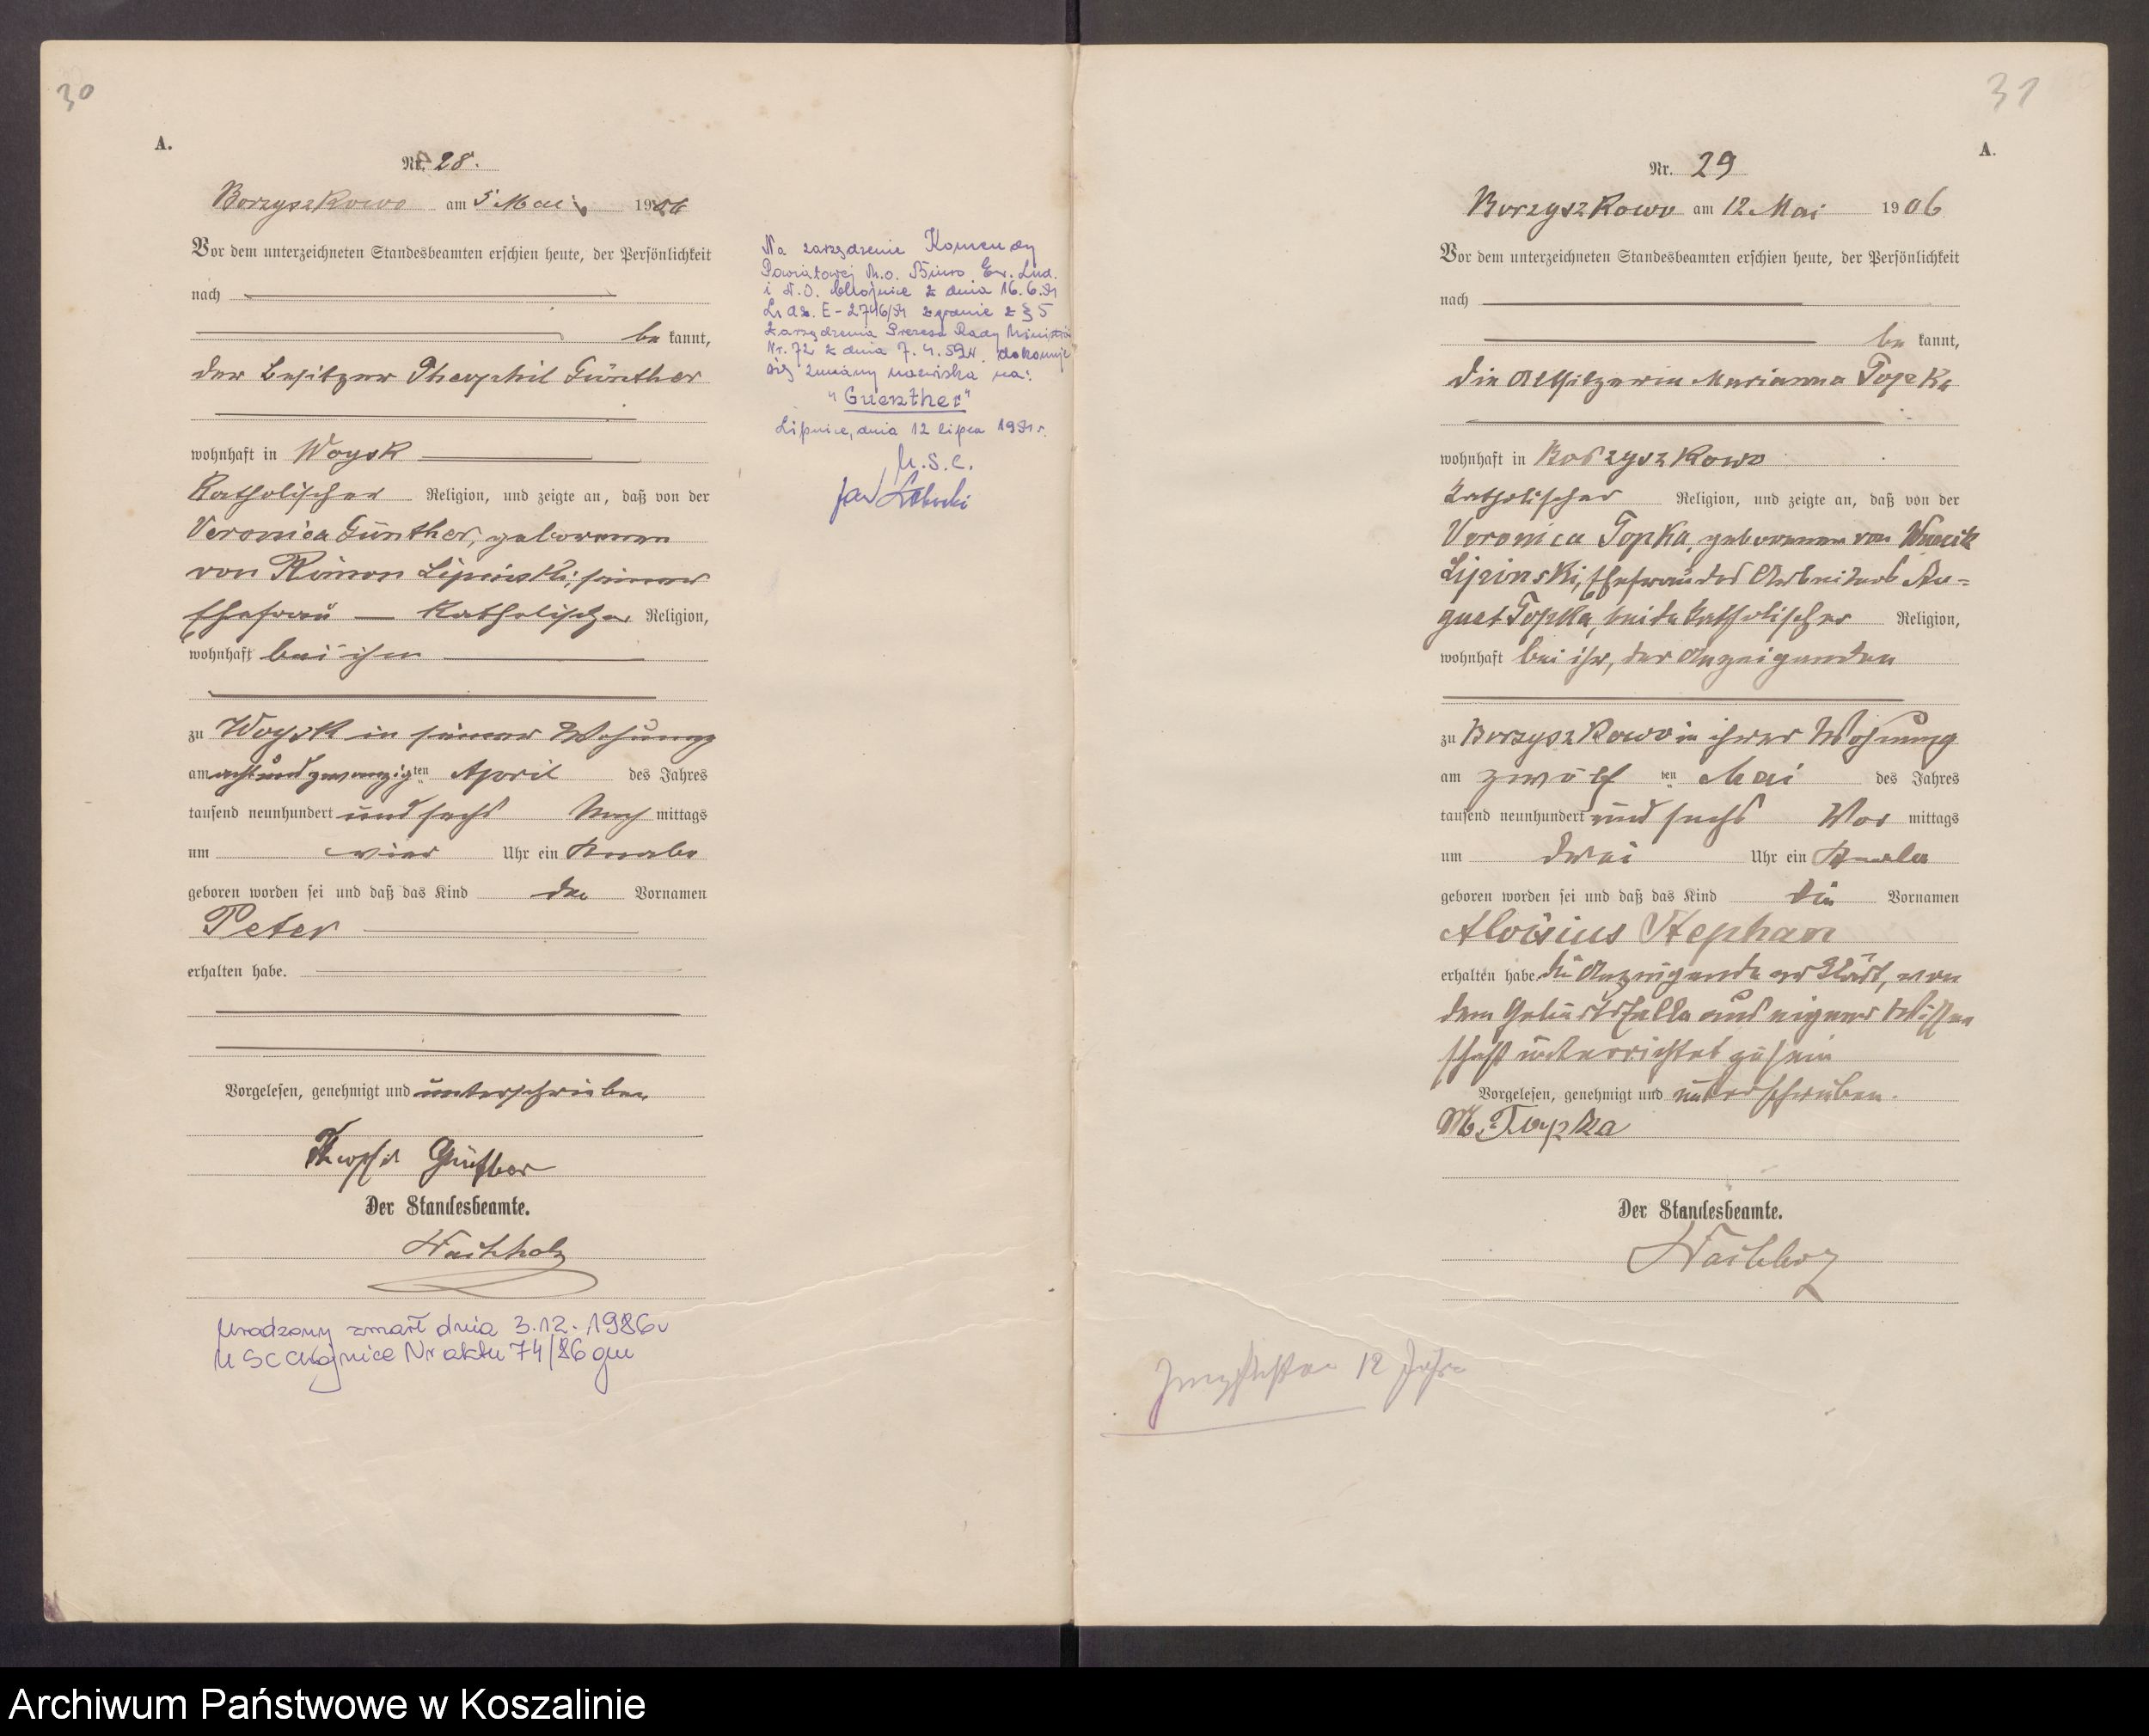 30
A.
Nr. 28.
Borzyszkowo am 5 Mai 1906
Vor dem unterzeichneten Standesbeamten erschien heute, der Persönlichkeit
nach
be kannt,
der Besitzer Theophil Günther
wohnhaft in Woysk
Katholischer Religion, und zeigte an, daß von der
Veronica Günther, geborenen
von Lipinski, seiner
Ehefrau — Katholischer Religion,
wohnhaft bei ihm
zu Woysk in seiner Wohnung
am acht und zwanzigten April des Jahres
tausend neunhundert und sechs Nach mittags
um vier Uhr ein Knabe
geboren worden sei und daß das Kind den Vornamen
Peter
erhalten habe.
Vorgelesen, genehmigt und unterschrieben
Theophil Günther
Der Standesbeamte.
Urodzony zmarł dnia 3.12.1986r
USC Chojnice Nr aktu 74/86
Na zarządzenie Komendy
Powiatowej M.O. Biuro Ew. Lud.
i D.O. Chojnice z dnia 16.6.
L. dz. E-2746/ zgodnie z § 5
Zarządzenia Prezesa Rady Ministrów
Nr. 72 z dnia 7.4.52r. dokonuje
się zmiany nazwiska na:
"Guenther"
Lipnica, dnia 12 lipca
U.S.C.
31
A.
Nr. 29
Borzyszkowo am 12 Mai 1906
Vor dem unterzeichneten Standesbeamten erschien heute, der Persönlichkeit
nach
be kannt,
die Altsitzerin Marianna Topka
wohnhaft in Borzyszkowo
katholischer Religion, und zeigte an, daß von der
Veronica Topka, geborenen von
Lipinski, Ehefrau des Arbeiters Au=
gust Topka, beide katholischer Religion,
wohnhaft bei ihr, der Anzeigenden
zu Borzyszkowo in ihrer Wohnung
am zwölf ten Mai des Jahres
tausend neunhundert und sechs Vor mittags
um drei Uhr ein Knabe
geboren worden sei und daß das Kind die Vornamen
Aloisius Stephan
erhalten habe. Die Anzeigende erklärt, von
dem Geburtsfalle aus eigener Wissen
schaft unterrichtet zu sein
Vorgelesen, genehmigt und unterschrieben.
M. Topka
Der Standesbeamte.
12 Jahre
Archiwum Państwowe w Koszalinie